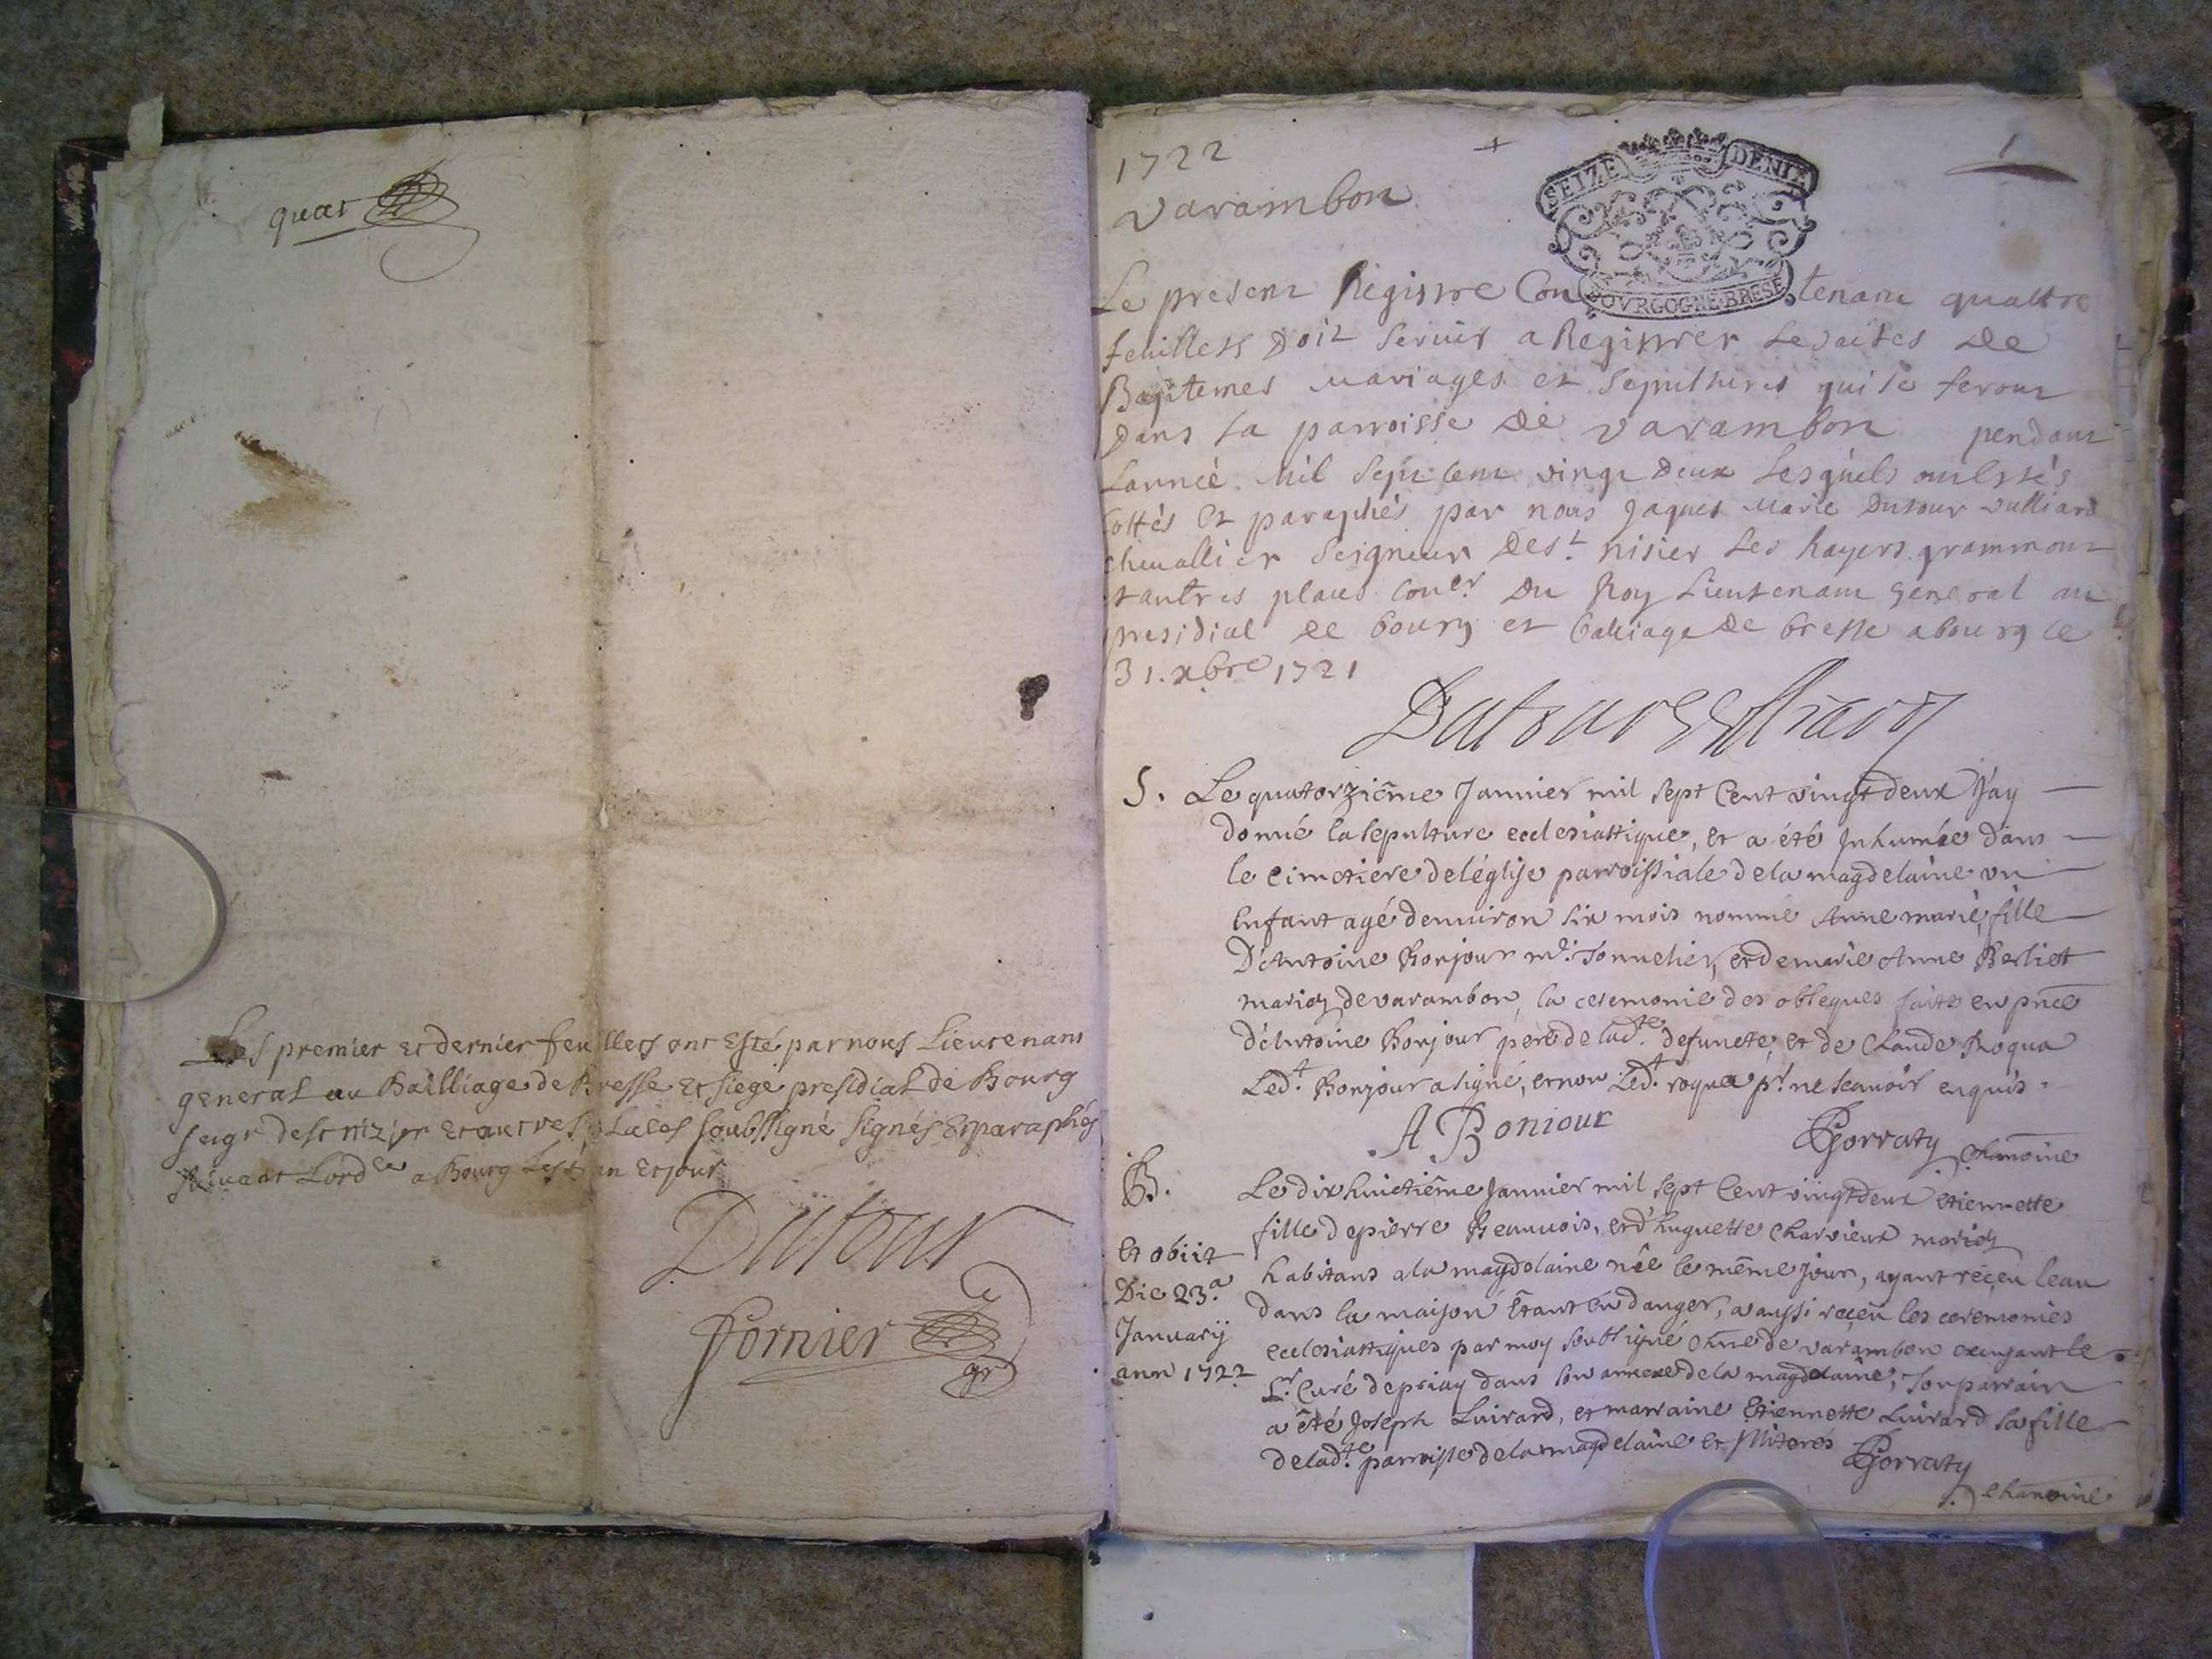 quat
Les premier et dernier feuillets ont esté par nous Lieutenant
general au Bailliage de Bresse et siege presidial de Bourg
seigr de st nizier et autres places soubsigné signés et paraphés
suivant Lordce a Bourg les an et jour
Dutour
fornier
gr
1722
varambon
1
SEIZE DENIE
BOVRGOGNE BRESE
Le present Registre Contenant quattre
feuillets doit servir a Registrer les actes de
Baptemes mariages et sepultures qui se feront
Dans la parroisse de varambon pendant
Lannéé mil sept cent vingt deux Lesquels ont estés
cottés et paraphés par nous Jaques marie Dutour vulliard
chevallier seigneur de st nisier les hayers grammont
& autres places coner du Roy Lieutenant general au
presidial de bourg et balliage de bresse a bourg le
31. xbre 1721
Dutour
S. Le quatorziême Januier mil sept Cent vingt deux J'ay
donné la sepulture ecclesiastique, et a été Jnhumée dans
le cimetiere de léglise parroissiale de la magdelaine un
Enfant agé denuiron six mois nommé Anne marie, fille
D'Antoine Bonjour md. Tonnelier, et de marie Anne Berliet
mariez de varambon, la ceremonie des obseques faite en pnce
d'Antoine Bonjour pere de ladte. defuncte, et de Claude Roqua
Ledt. Bonjour a signé, et non Ledt. roqua pr. ne scauoir enquis.
A Bonjour
Gorraty chanoine
B. Le dix huictiême Januier mil sept Cent vingt deux etiennette
fille de pierre Beauuois, et d'huguette Charvieux mariez
habitans a la magdelaine née le même jour, ayant reçeu leau
dans la maison êtant en danger, a aussi reçeu les ceremonies
ecclesiastiques par moy soubsigné chne de varambon exerçant le
Sr. Curé de priay dans son annexe de la magdelaine, son parrain
a été Joseph Luirard, et marraine Etiennette Luirard sa fille
de ladte. parroisse de la magdelaine et
Gorraty
chanoine
Et obiit
Die 23.a
Januarij
ann 1722